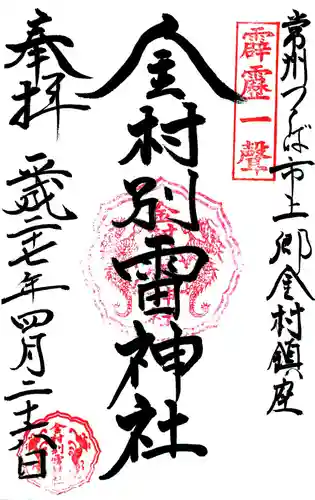 常州つくば市上郷金村鎮座
霹靂一聲
金村別雷神社
奉拝
平成二十七年四月二十六日